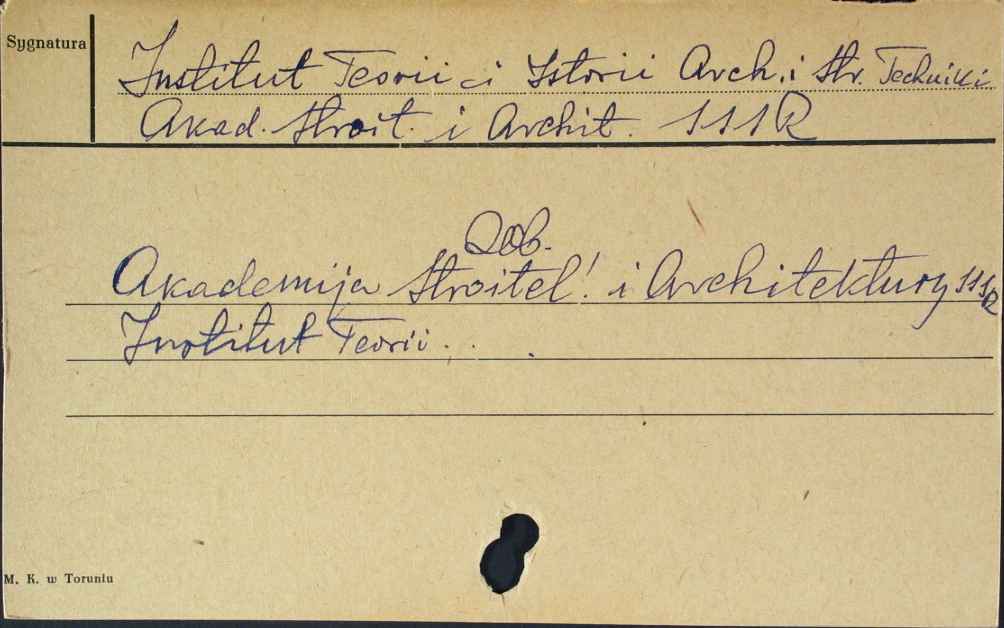 Sygnatura
Institut Teorii i Istorii Arch. i Str. Techniki
Akad. Stroit. i Archit. SSSR
Zob.
Akademija Stroitel'. i Architektury SSSR
Institut Teorii...
M. K. w Toruniu